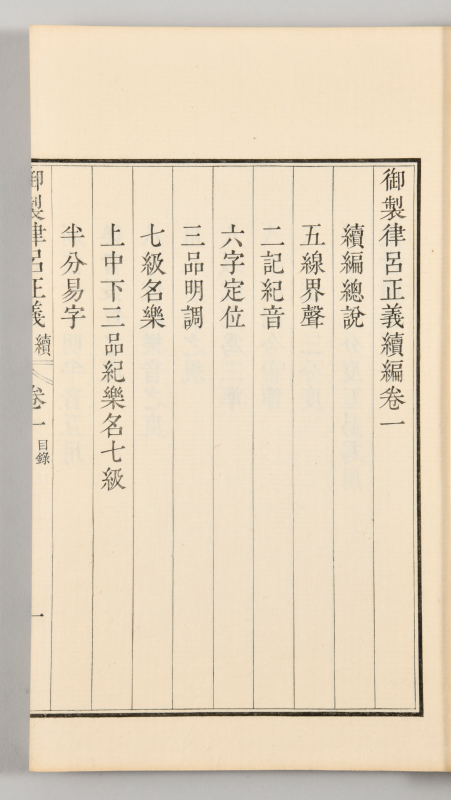 御製律呂正義續編卷一
續編總說
五線界聲
二記紀音
六字定位
三品明調
七級名樂
上中下三品紀樂名七級
半分易字
御製律呂正義續
卷一
目錄
一